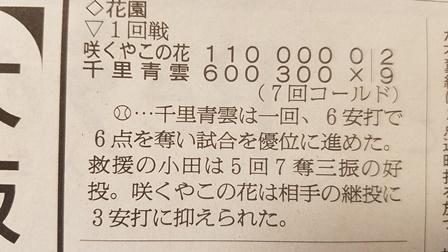 ◇花園
▽1回戦
咲くやこの花 110 000 0 2
千里青雲 600 300 × 9
(7回コールド)
⚾…千里青雲は一回、6安打で
6点を奪い試合を優位に進めた。
救援の小田は5回7奪三振の好
投。咲くやこの花は相手の継投に
3安打に抑えられた。